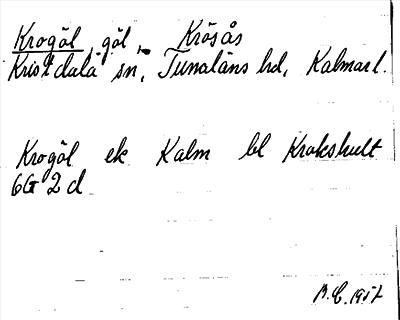 Krogöl, göl, Krösås
Kristdala sn, Tunaläns hd, Kalmar l.
Krogöl ek Kalm bl Krokshult
6G 2d
1957